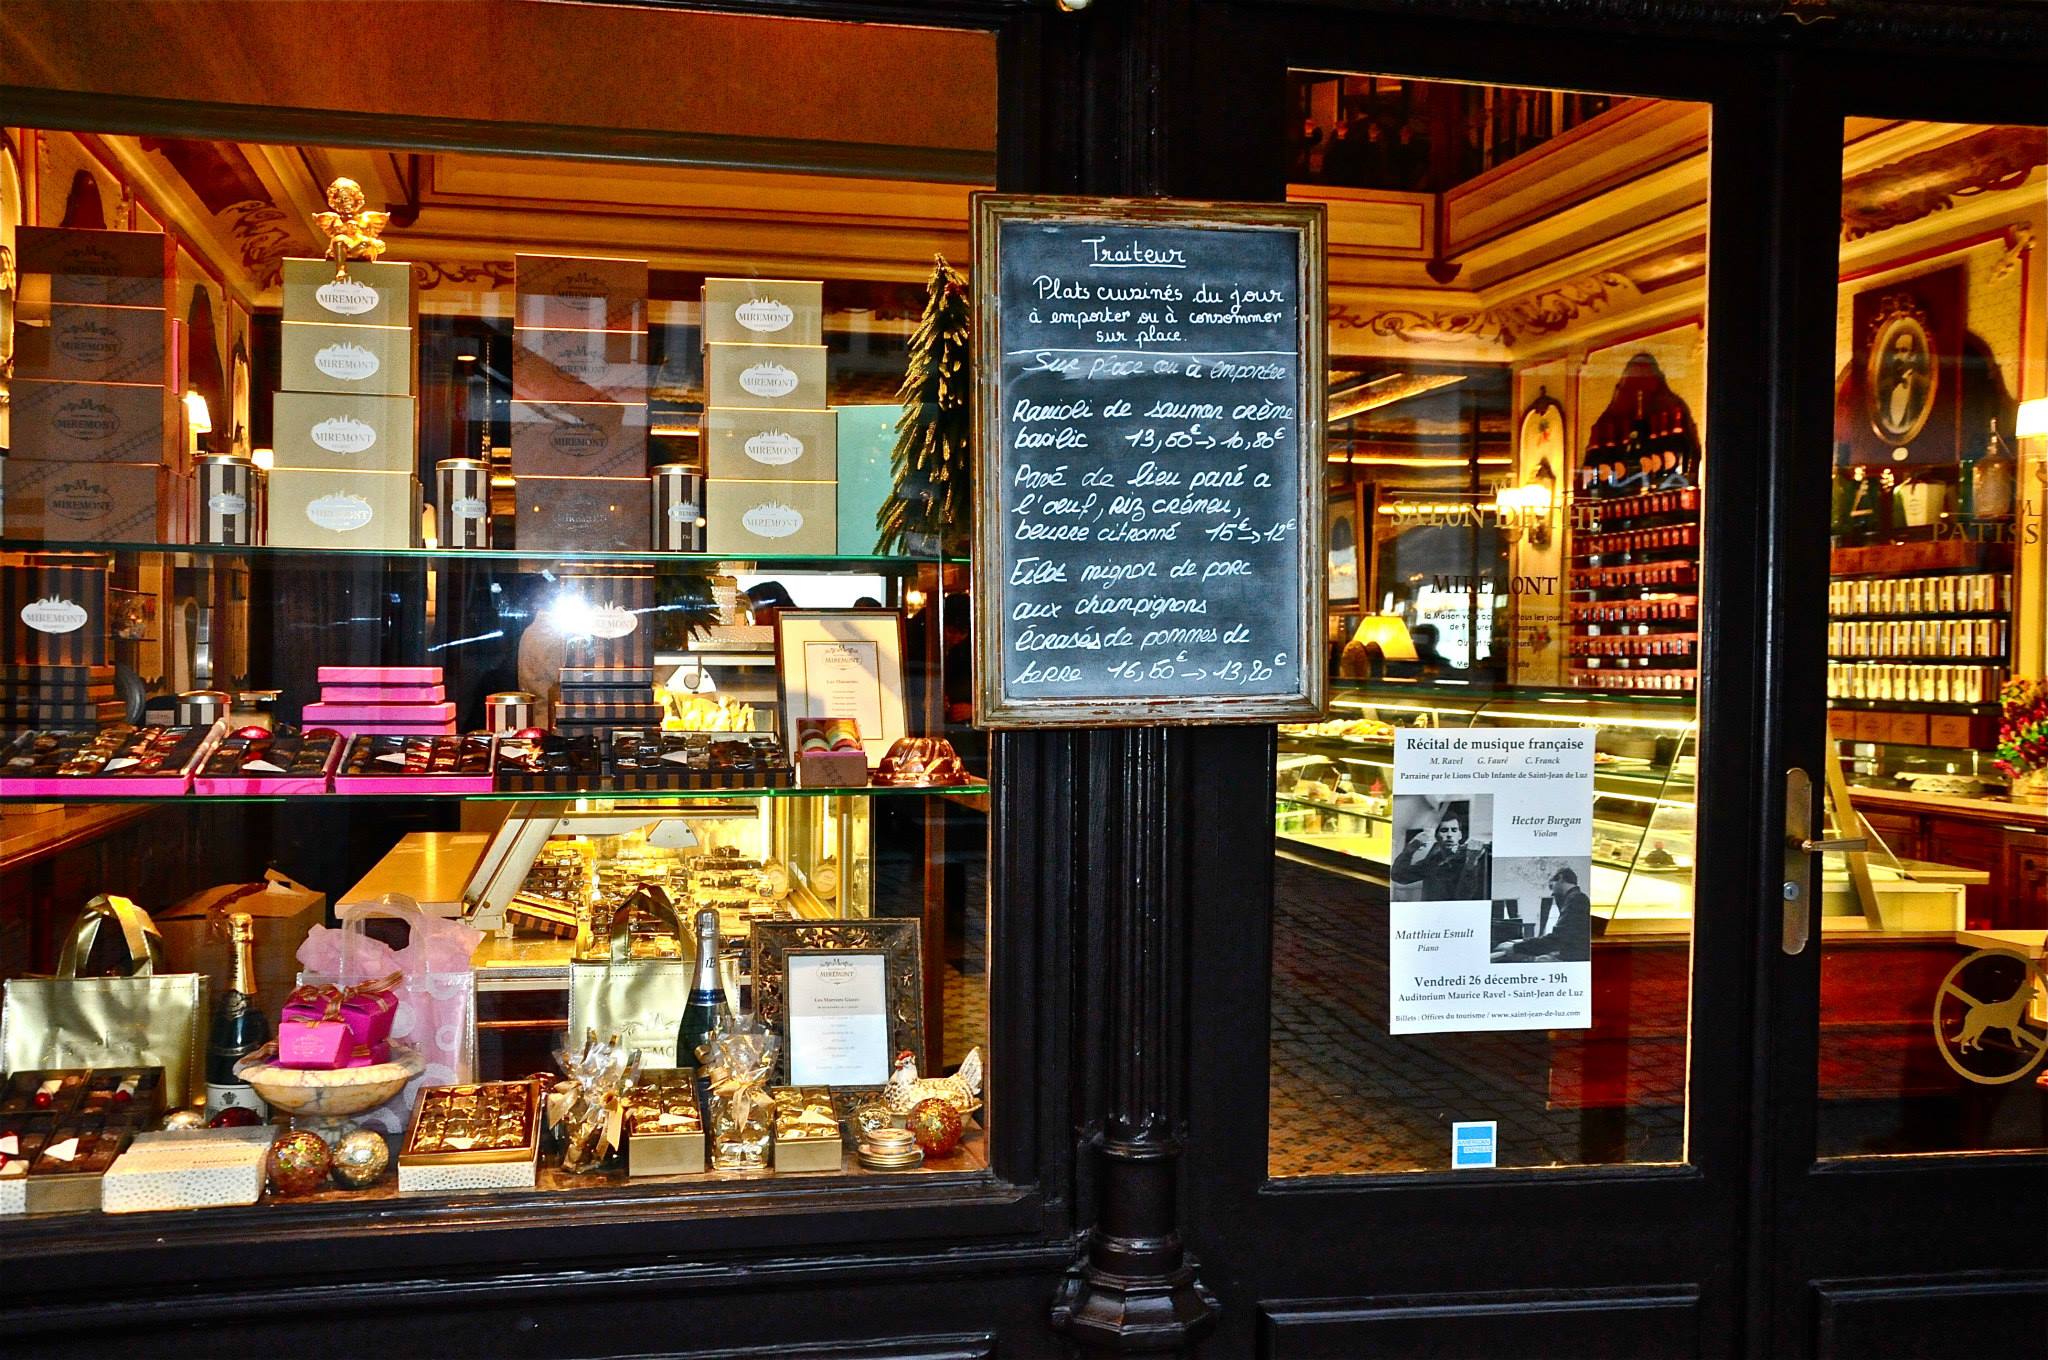 MIREMONT
MIREMONT
MIREMONT
MIREMONT
MIREMONT
MIREMONT
MIREMONT
MIREMONT
MIREMONT
MIREMONT
MIREMONT
Thé
MIREMONT
MIREMONT
MIREMONT
Les Macarons
MIREMONT
Les Marrons Glacés
Traiteur
Plats cuisinés du jour
à emporter ou à consommer
sur place.
Sur place ou à emporter
Ravioli de saumon crème
basilic 13,50€ → 10,80€
Pavé de lieu pané a
l'oeuf, Riz crémeu,
beurre citronné 15€ → 12€
Filet mignon de porc
aux champignons
écrasés de pommes de
terre 16,50€ → 13,20€
SALON DE THÉ
MIREMONT
la Maison vous tous les jours
PATISS
Récital de musique française
M. Ravel G. Fauré C. Franck
Parrainé par le Lions Club Infante de Saint-Jean de Luz
Hector Burgan
Violon
Matthieu Esnult
Piano
Vendredi 26 décembre - 19h
Auditorium Maurice Ravel - Saint-Jean de Luz
Billets : Offices du tourisme / www.saint-jean-de-luz.com
AMERICAN
EXPRESS